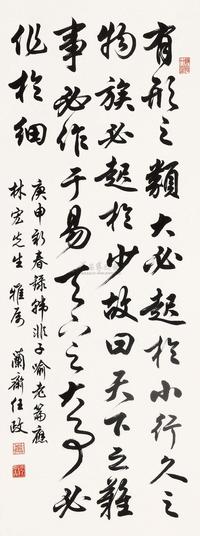 有形之類大必起於小行久之
物族必起於少故曰天下之難
事必作于易天下之大事必
作於細
庚申新春録韩非子喻老篇應
林宏先生雅属 蘭齋任政